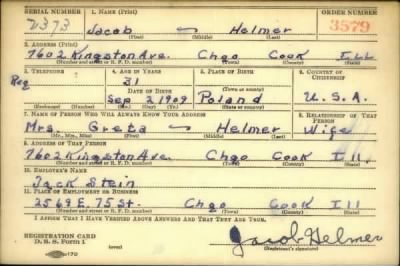 SERIAL NUMBER 1. NAME (Print) ORDER NUMBER
2373 Jacob — Helmer 3579
(First) (Middle) (Last)
2. ADDRESS (Print)
7602 Kingston Ave. Chgo Cook ILL
(Number and street or R. F. D. number) (Town) (County) (State)
3. TELEPHONE 4. AGE IN YEARS 5. PLACE OF BIRTH 6. COUNTRY OF CITIZENSHIP
Reg 31
DATE OF BIRTH (Town or county)
Sep 3 1909 Poland U.S.A.
(Exchange) (Number) (Mo.) (Day) (Yr.) (State or country)
7. NAME OF PERSON WHO WILL ALWAYS KNOW YOUR ADDRESS 8. RELATIONSHIP OF THAT PERSON
Mrs. Greta — Helmer Wife
(Mr., Mrs., Miss) (First) (Middle) (Last)
9. ADDRESS OF THAT PERSON
7602 Kingston Ave. Chgo Cook Ill.
(Number and street or R. F. D. number) (Town) (County) (State)
10. EMPLOYER'S NAME
Jack Stein
11. PLACE OF EMPLOYMENT OR BUSINESS
2569 E. 75 St. Chgo Cook Ill
(Number and street or R. F. D. number) (Town) (County) (State)
I AFFIRM THAT I HAVE VERIFIED ABOVE ANSWERS AND THAT THEY ARE TRUE.
REGISTRATION CARD
D. S. S. Form 1 Jacob Helmer
(Registrant's signature)